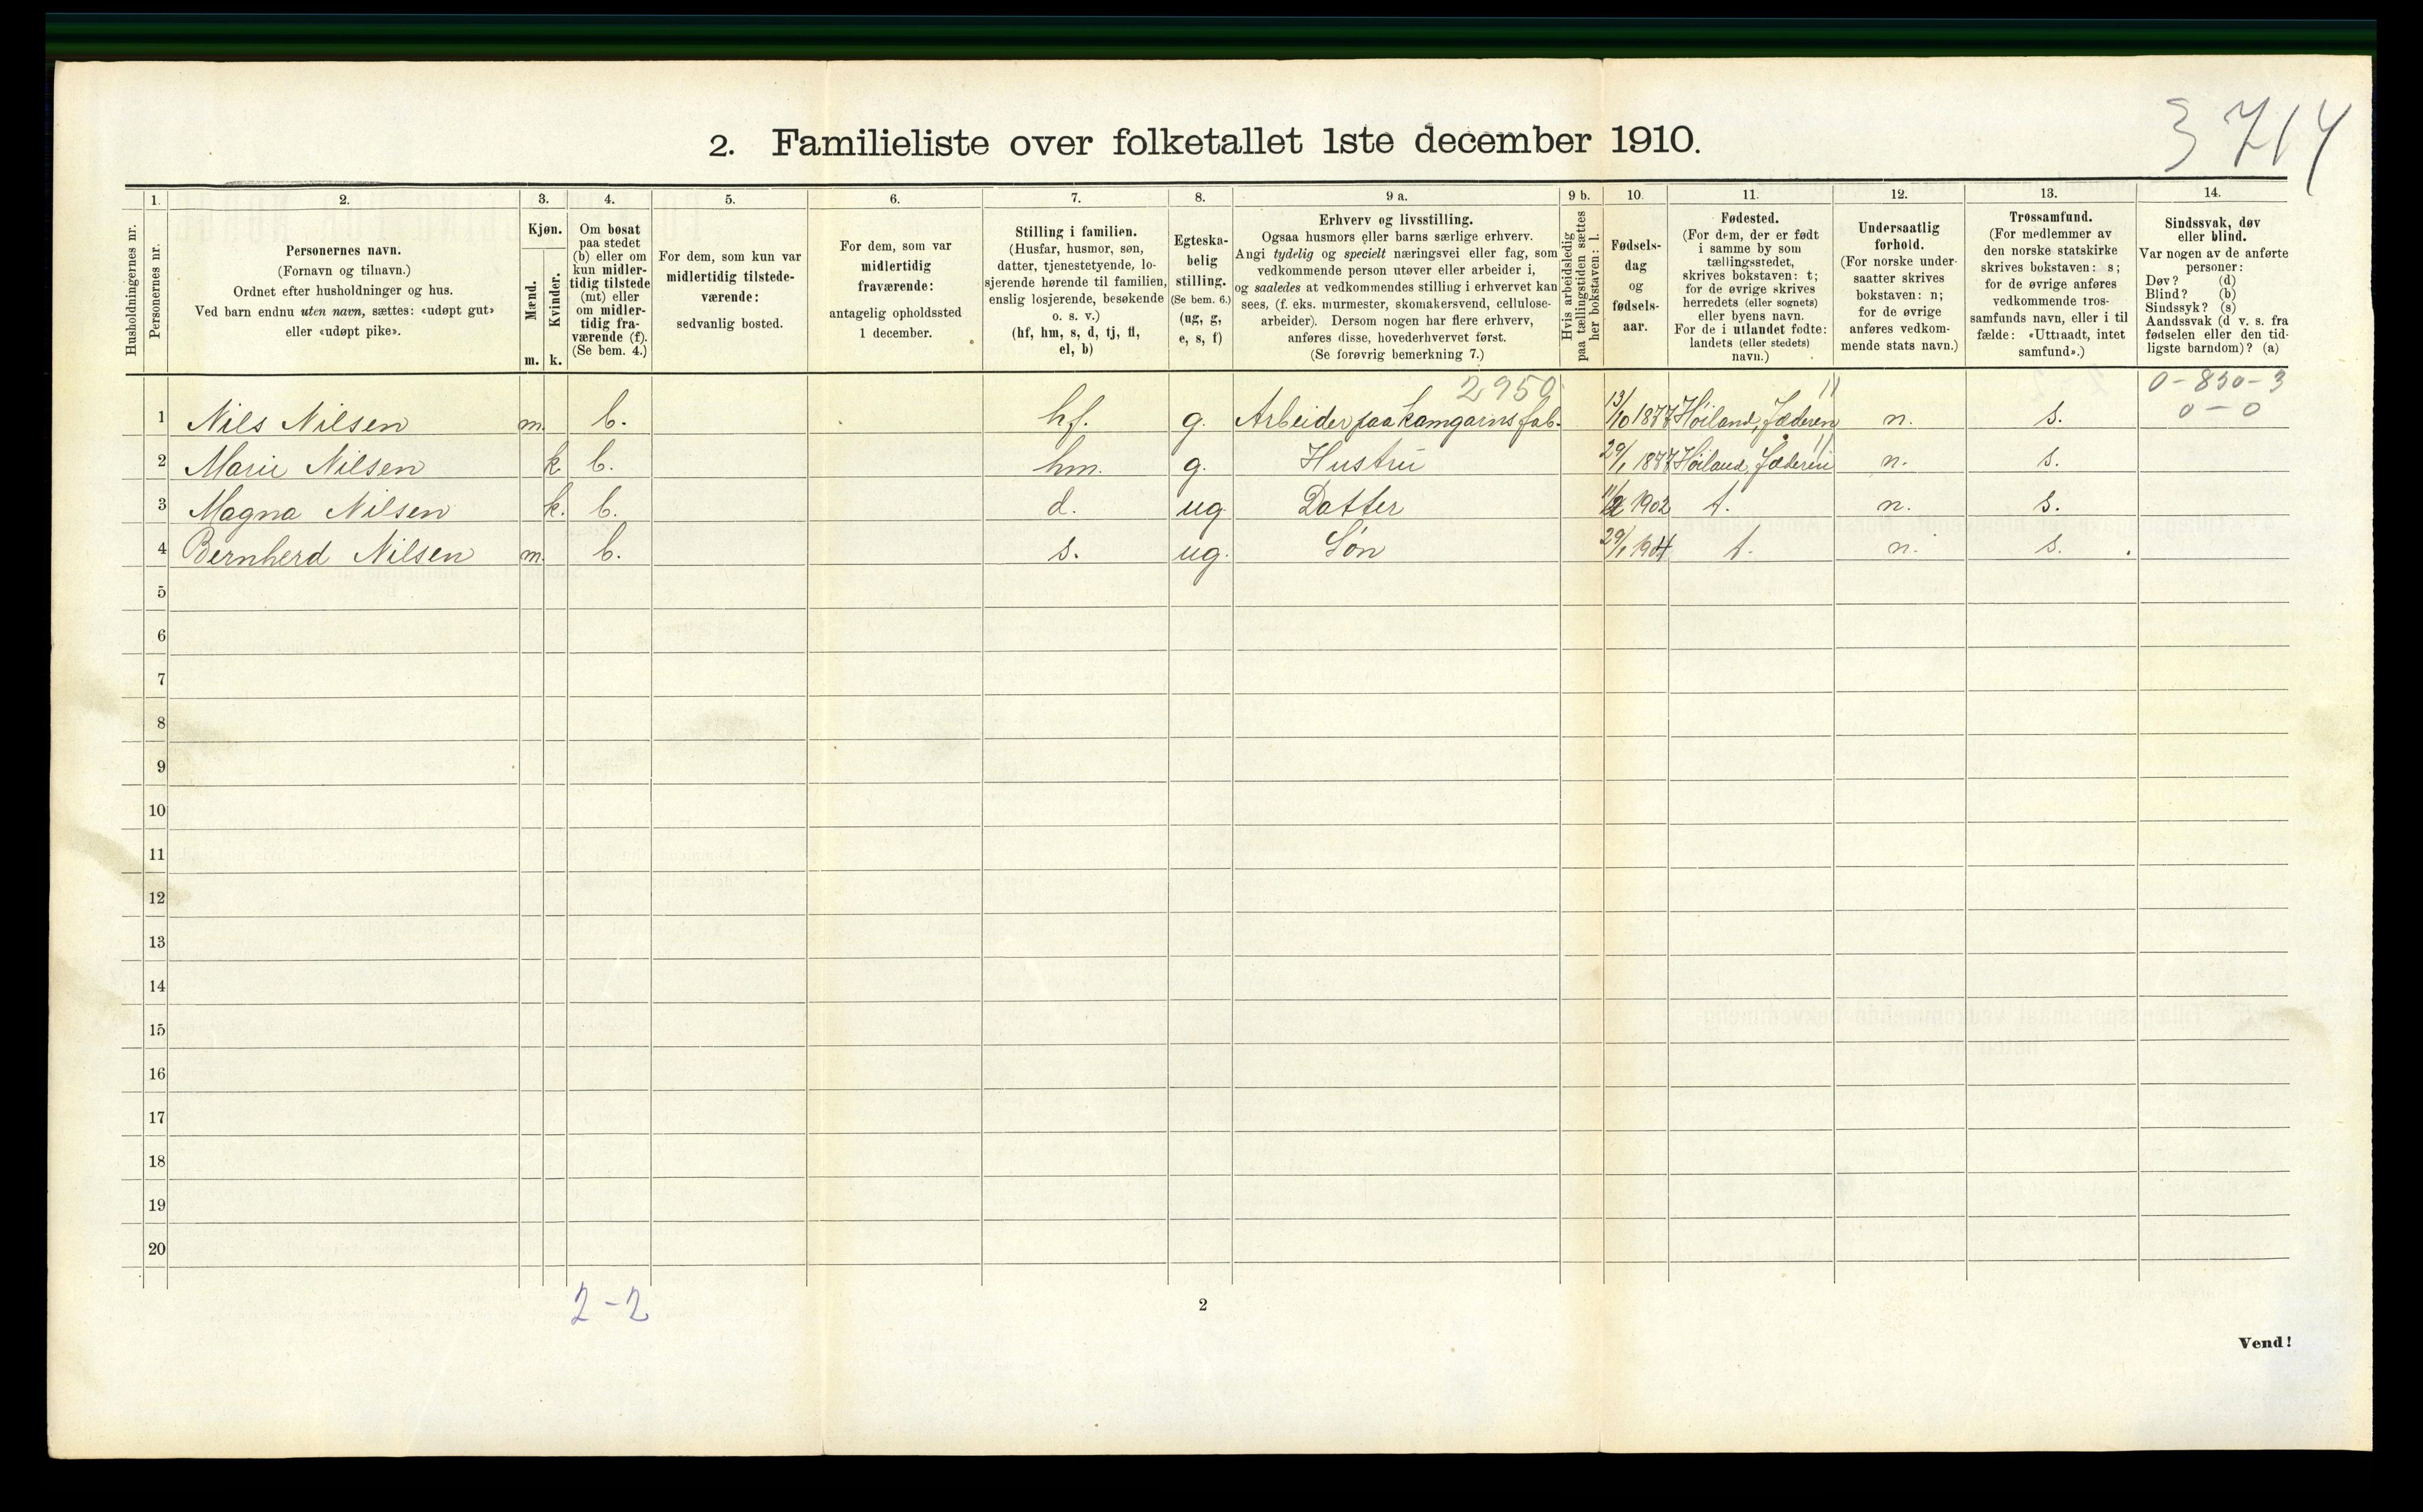 3714
2. Familieliste over folketallet 1ste december 1910.
Husholdningernes nr.
1.
Personernes nr.
2.
Personernes navn.
(Fornavn og tilnavn.)
Ordnet efter husholdninger og hus.
Ved barn endnu uten navn, sættes: «udøpt gut»
eller «udøpt pike».
3.
Kjøn.
Mænd.
Kvinder.
m. k.
4.
Om bosat
paa stedet
(b) eller om
kun midler-
tidig tilstede
(mt) eller
om midler-
tidig fra-
værende (f).
(Se bem. 4.)
5.
For dem, som kun var
midlertidig tilstede-
værende:
sedvanlig bosted.
6.
For dem, som var
midlertidig
fraværende:
antagelig opholdssted
1 december.
7.
Stilling i familien.
(Husfar, husmor, søn,
datter, tjenestetyende, lo-
sjerende hørende til familien,
enslig losjerende, besøkende
o. s. v.)
(hf, hm, s, d, tj, fl,
el, b)
8.
Egteska-
belig
stilling.
(Se bem. 6.)
(ug, g,
e, s, f)
9 a.
Erhverv og livsstilling.
Ogsaa husmors eller barns særlige erhverv.
Angi tydelig og specielt næringsvei eller fag, som
vedkommende person utøver eller arbeider i,
og saaledes at vedkommendes stilling i erhvervet kan
sees, (f. eks. murmester, skomakersvend, cellulose-
arbeider). Dersom nogen har flere erhverv,
anføres disse, hovederhvervet først.
(Se forøvrig bemerkning 7.)
9 b.
Hvis arbeidsledig
paa tællingstiden sættes
her bokstaven: l.
10.
Fødsels-
dag
og
fødsels-
aar.
11.
Fødested.
(For dem, der er født
i samme by som
tællingsstedet,
skrives bokstaven: t;
for de øvrige skrives
herredets (eller sognets)
eller byens navn.
For de i utlandet fødte:
landets (eller stedets)
navn.)
12.
Undersaatlig
forhold.
(For norske under-
saatter skrives
bokstaven: n;
for de øvrige
anføres vedkom-
mende stats navn.)
13.
Trossamfund.
(For medlemmer av
den norske statskirke
skrives bokstaven: s;
for de øvrige anføres
vedkommende tros-
samfunds navn, eller i til
fælde: «Uttraadt, intet
samfund».)
14.
Sindssvak, døv
eller blind.
Var nogen av de anførte
personer:
Døv? (d)
Blind? (b)
Sindssyk? (s)
Aandssvak (d v. s. fra
fødselen eller den tid-
ligste barndom)? (a)
2950 11 0-850-3
0-0
1 Nils Nilsen m. b. hf. g. Arbeider paa Kamgarns fab. 13/10 1877 Høiland, Jæderen n. s.
11
2 Marie Nilsen k b. hm. g. Hustru 29/1 1877 Høiland, Jæderen n. s.
3 Magna Nilsen k. b. d. ug Datter 1902 t. n. s.
4 Bernherd Nilsen m. b. s. ug. Søn 29/1 1904 t. n. s.
5
6
7
8
9
10
11
12
13
14
15
16
17
18
19
20
2-2
2
Vend!